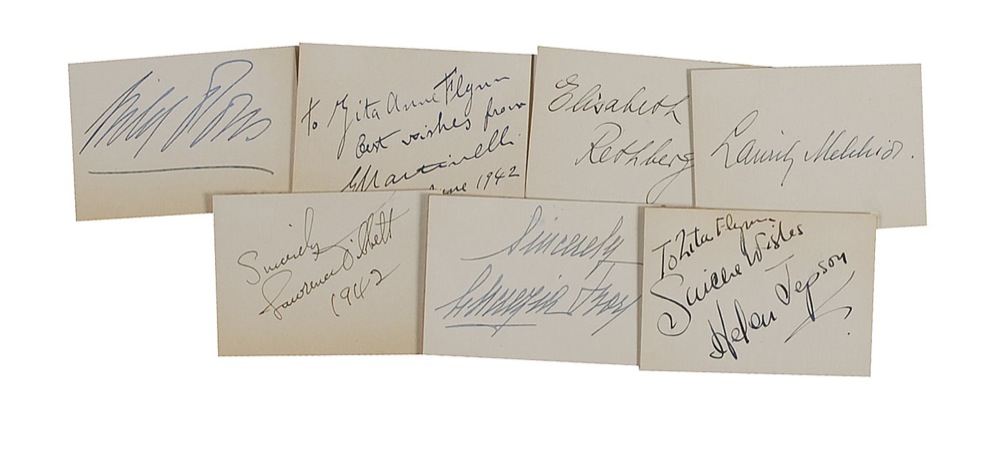 Lily Pons
To Zita Anne Flynn
Best wishes from
Martinelli
June 1942
Elisabeth
Rethberg
Lauritz Melchior.
Sincerely
Lawrence Tibbett
1942
Sincerely
To Zita Flynn
Sincere Wishes
Helen Jepson